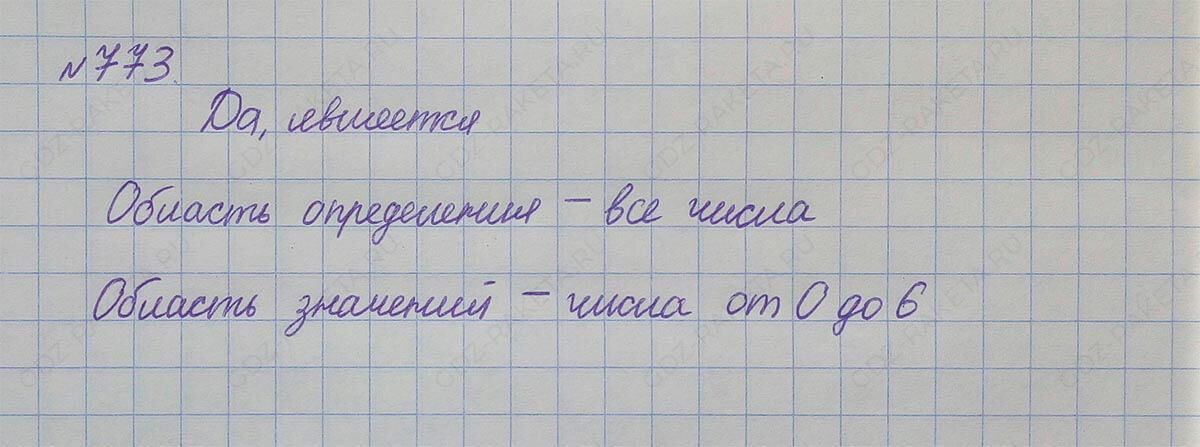 №773.
Да, является
Область определения – все числа
Область значений – числа от 0 до 6
GDZ-RAKETA.RU